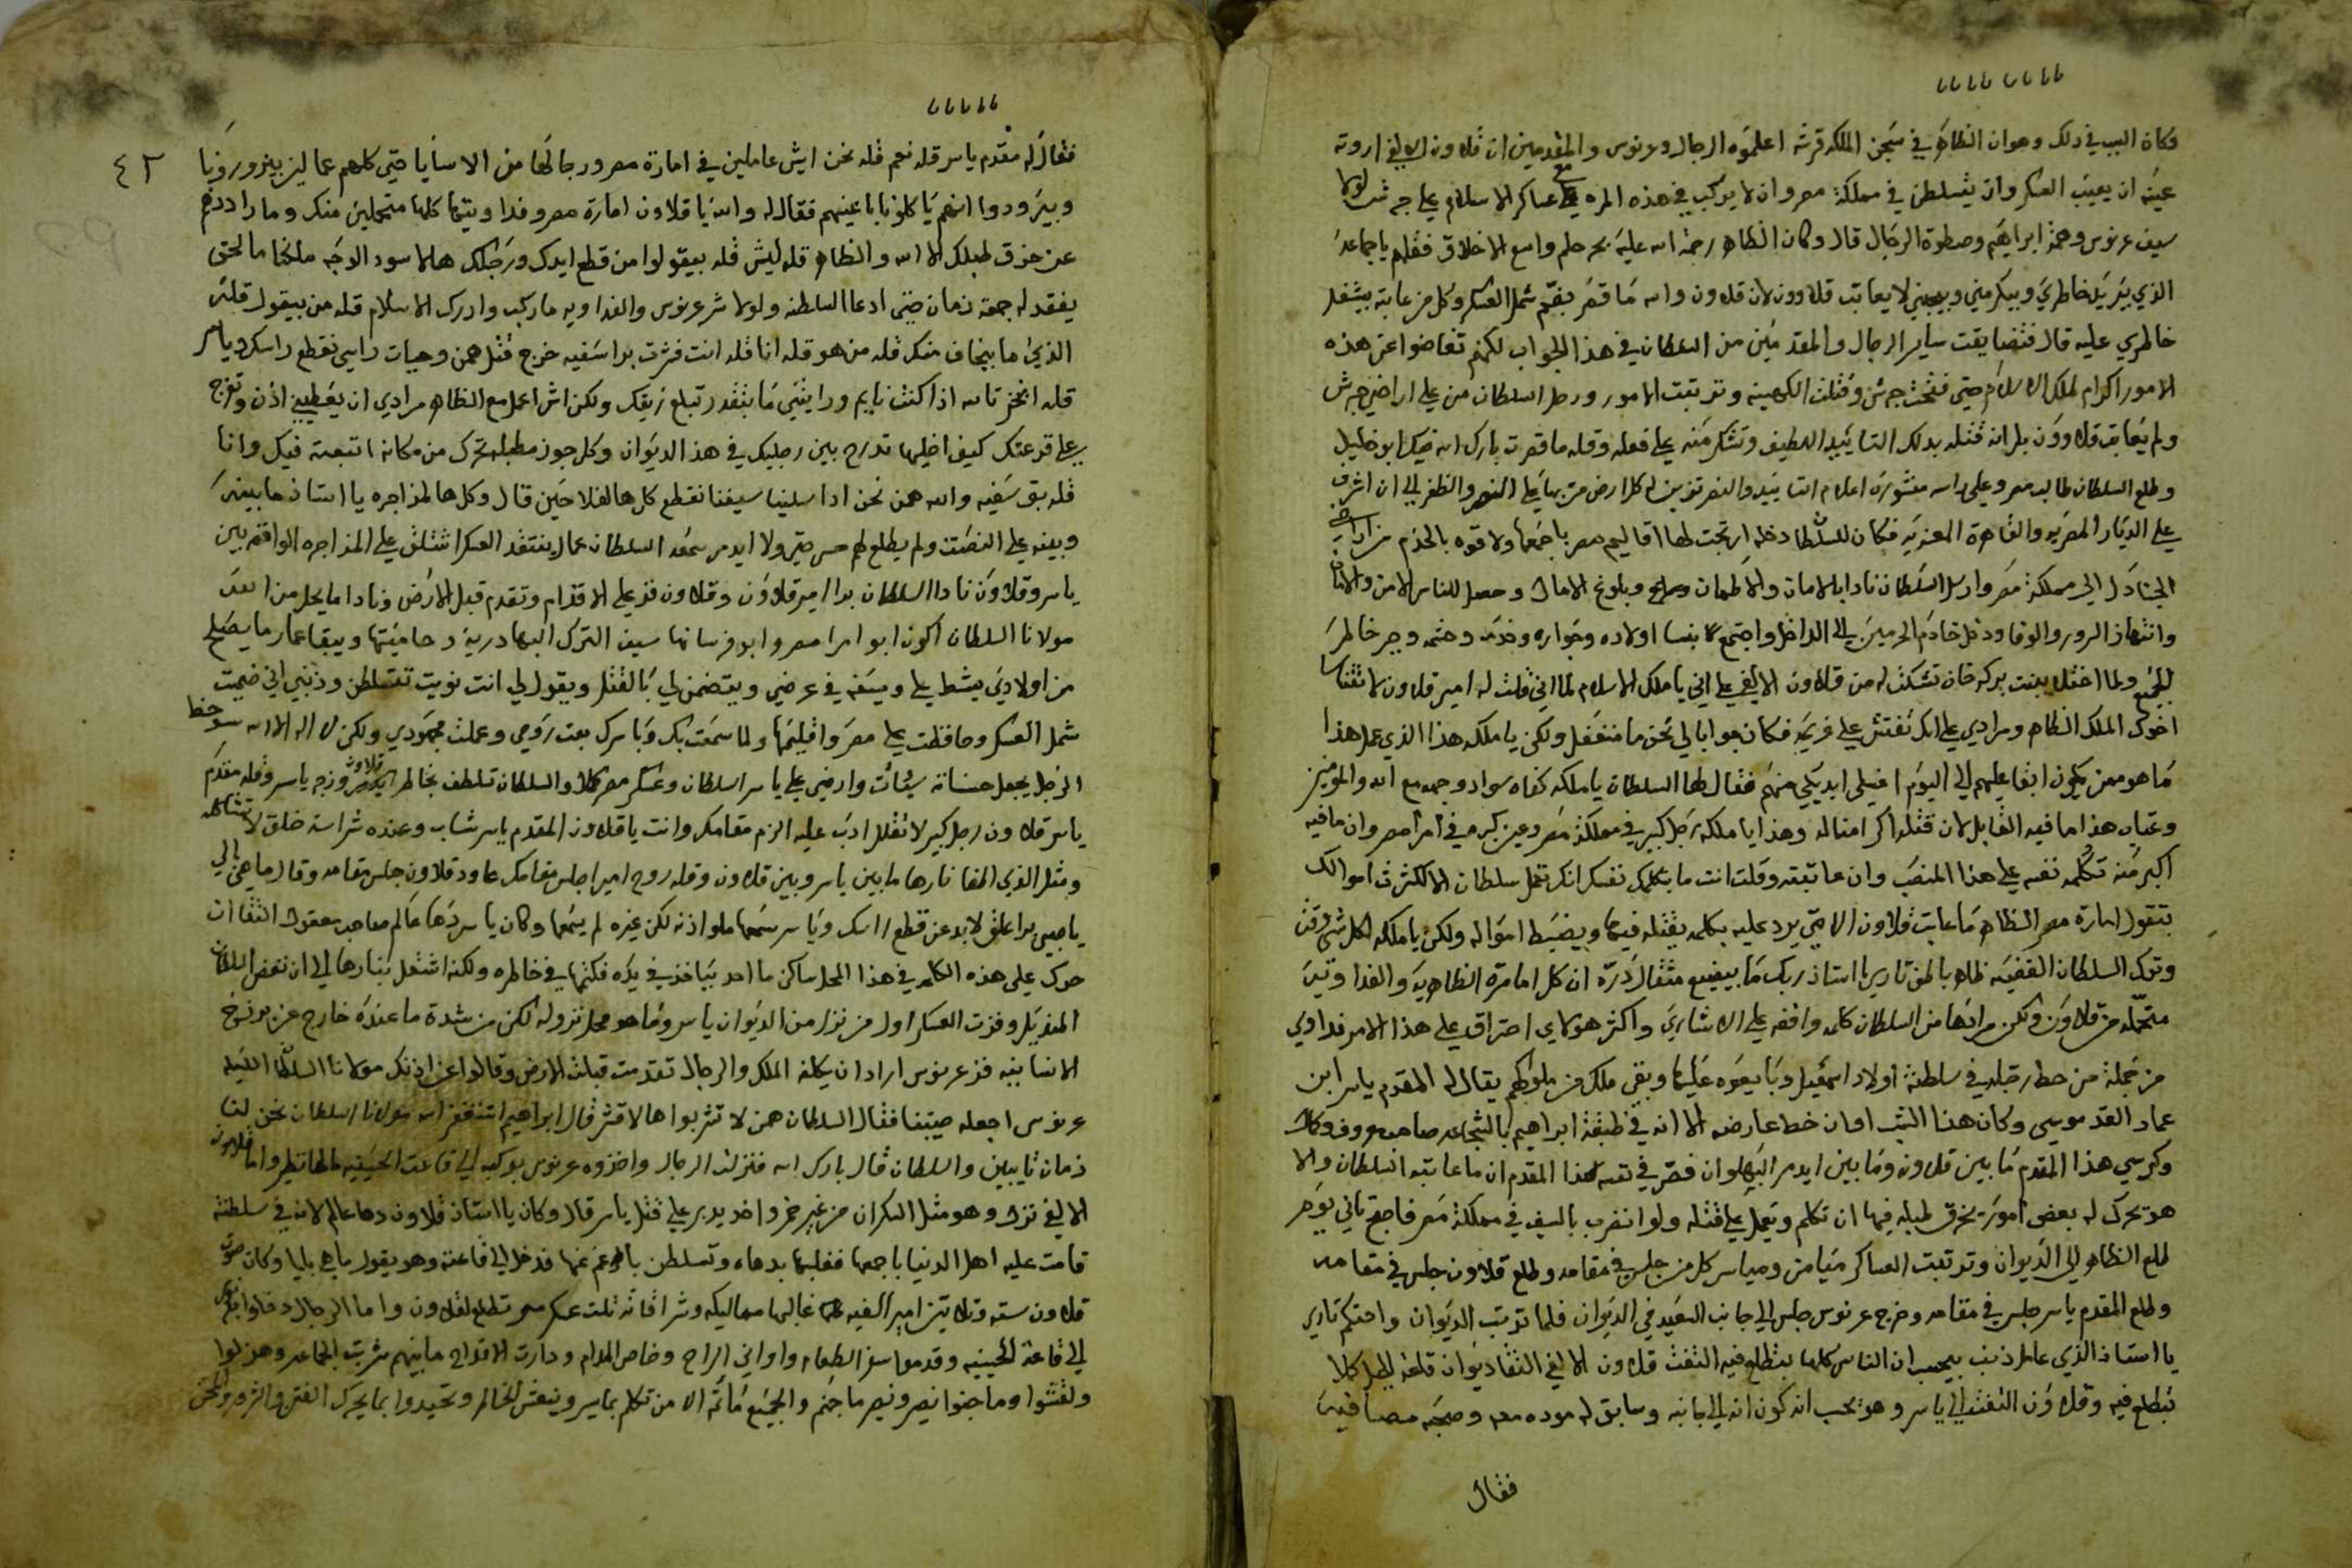 وكان السبب في ذلك وهو ان الظاهر في سجن الملكه قرشه اعلموه الرجال وعرنوس والمقدمين ان قلاوون الالفي اروته
عينه ان يعيب العسكر وان يتسلطن في مملكة مصر وان لا يركب في هذه المره مع عساكر الاسلام على جرش لولا
سيف عرنوس وهمة ابراهيم وصطوة الرجال قال وكان الظاهر رحمة الله عليه بحر حلم واسع الاخلاق فقلهم يا جماعه
الذي يريد خاطري وبيكرمني وبيحبني لا يعاتب قلاوون لان قلاوون والله ما قصر بقيم شمل العسكر وكل من عاتبه بيشغل
خاطري عليه قال فتضايقت ساير الرجال والمقدمين من السلطان في هذا الجواب لكنهم تغاضوا عن هذه
الامور اكرام لملك الاسلام حتى فتحت جرش وقتلت الكهينه وترتبت الامور ورحل السلطان من على اراضي جرش
ولم يعاقب قلاوون بل انه قتله بدلك التاييد اللطيف وتشكر منه على فعله وقله ما قصرت بارك الله فيك ابو خليل
وطلع السلطان طالب مصر وعلى راسه منشورة اعلام التاييد والنصر تزين له كل ارض مر بها على النصر والظفر الى ان اشرف
على الديار المصريه والقاهرة المعزيه فكان للسلطان دخله ارتجت لها اقاليم مصر باجمعها ولا قوه بالحزم من اراضي
الجنادل الى مملكة مصر وارسل السلطان نادا بالامان والاطمان وبلوغ الامال وحصل للناس الامن والامان
وانتها ذا السرور والوفا ودخل خادم الحرمين الى الداخل واجتمع بنسا اولاده وجواره وخدمه وحشمه وجبر خاطر
الجميع ولما اختلا ببنت بركه خان تشكت له من قلاوون الالفي على اني يا ملك الاسلام لما اني قلت له امير قلاوون لا تنسا
اخوك الملك الظاهر ومرادي على انك تفتش على غريمه فكان جوابا لي نحن ما منغفل ولكن يا ملكه هذا الذي عمل هذا
ما هو ممن يكون ابقا عليهم الى اليوم اغسلي ايديكي منهم فقال لها السلطان يا ملكه كفاه سواد وجهه مع الله والمومنين
وعتابه هذا ما فيه القابل لان قتله اكرامتاله وهذا يا ملكه رجل كبير في مملكة مصر وعين كرم في امرا مصر وان ما فيه
اكبر منه تكلمه نفسه على هذا المنصب وان عاتبته وقلت انت ما بتكلمك نفسك انك تعمل سلطان الا لكثرت اموالك
بتقول امارة مصر الظاهر ما عاتب قلاوون الا حتى يرد عليه بكلمه يقتله فيها ويضبط امواله ولكن يا ملكه لكل شي وقت
وترك السلطان القضيه ظاهر باطن تاري يا استاذ ربك ما بيضيع مثقال ذره ان كل امارة الظاهريه والفداويه
متحمله من قلاوون ولكن مراتها من السلطان كلمه واقفه على الاشاري واكثر هولاي احتراق على هذا الامر فداوي
من جملة من حط رجله في سلطنة اولاد اسمعيل وبايعوه عليها وبقى ملك من ملوكهم يقال له المقدم ياسر ابن
عماد القد موسي وكان هذا الشب اوان خط عارضه الا انه في طبقة ابراهيم بالشجاعه صاحب معروف وكان
وكرسي هذا المقدم ما بين قلاوون وما بين ايدمر البهلوان فصر في نفسه لهذا المقدم ان ما عاتبه السلطان والا
هو تحرك له بعض امور تخرق طبله فيها ان تكلم وتعمل على قتله ولو انضرب بالسيف في مملكة مصر فاصبح تاني يوم
طلع الظاهر الى الديوان وترتبت العساكر ميامن ومياسر كل من جلس في مقامه وطلع قلاوون جلس في مقامه
وطلع المقدم ياسر جلس في مقامه وخرج عرنوس جلس الى جانب السعيد في الديوان فلما ترتب الديوان واحتكم تاري
يا استاذ الذي عامل ذنب بيحسب ان الناس كلها بتطلع فيه التفت قلاوون الالفي التقا ديوان قلعة الجبل كلها
بتطلع فيه وقلاوون التفت الى ياسر وهو بحسب انه كون انه الى جانبه وسابق له موده معه وصحبه مصافيه
فقال
فقال له مقدم ياسر قله نعم قله نحن ايش عاملين في امارة مصر ورجالها من الاسايا حتى كلهم عمالين بيزورونا
وبيزودوا انهم ياكلونا باعينهم فقال له والله يا قلاوون امارة مصر وفداويتها كلها متحملين منك وما راددهم
عن خرق طبلك الا الله والظاهر قله ليش قله بيقولوا من قطع ايدك ورجلك هالاسود الوجه ملكنا ما لحق
يفقد له جمعة زمان حتى ادعا السلطنه ولولا شر عرنوس والفداويه ما ركب وادرك الاسلام قله من بيقول قله
الذي ما بيخاف منك قله من هو قله انا قله انت فشرت برا سفيه خرج قتل همن وجبات راسي نقطع راسك وياسر
قله انخرتا سه اذا كنت نايم ورايتني ما بتقدر تبلع ريقك ولكن اش اعمل مع الظاهر مرادي ان يعطيني اذن وتفرج
على قرعتك كيف اخليها تدرج بين رجليك في هذا الديوان وكل جوز مطبله تحرك من مكانه اتبعته فيك وانا
قله بق سفيه والله همن نحن اذا سلينا سيفنا نقطع كل هالفلاحين قال وكل هالمزاجره يا استاذ ما بينه
وبينه على النصت ولم يطلع لهم حس حتى ولا ايدمر سمعه السلطان عمال ينتقد العسكر التلق على المزاجره الواقعه بين
ياسر وقلاوون نادا السلطان برا امير قلاوون وقلاوون فز على الاقدام وتقدم قبل الارض ونادا ما يحل من الله
مولانا السلطان اكون ابو امرا مصر وابو فرسانها سيف الترك البهادرية وحاميتها ويبقا عمار ما يصلح
من اولادي يشط علي ويسفه في عرضي ويتضمن لي بالقتل ويقول لي انت نويت تتسلطن وذنبي اني ضميت
شمل العسكر وحافظت على مصر واقليمها ولما سمعت بك وباسرك بعت روحي وعملت مجهودي ولكن لا اله الا الله سو حظ
الرجل يجعل حسناته سيئات وارضي علي ياسر السلطان وعسكر مصر كلا والسلطان تلطف بخاطر قلاوون وزجر ياسر وقله مقدم
ياسر قلاوون رجل كبير لا تقلل ادب عليه الزم مقامك وانت يا قلاوون المقدم ياسر شاب وعنده شراسة خلق لا تشاكله
ومثل الذي الفا نارها ما بين ياسر وبين قلاوون وقله روح امير اجلس مقامك عاود قلاوون جلس مقامه وقال ما هي الي
يا صبي برا علق لابد عن قطع راسك وياسر سمعها ملو اذنه لكن غيره لم يسمعها وكان ياسر دها عالم صاحب معقول التقا ان
حرك على هذه الكلمه في هذا المحل ساكن ما احد بياخذ في يده فكتمها في خاطره ولكنه اشتعل بنارها الى ان نفض السلطان
المنديل وفزت العسكر اول من نزل من الديوان ياسر وما هو محل نزوله لكن من شدة ما عنده خارج عن برزخ
الانسانيه فز عرنوس اراد ان يكلم الملك والرجال تقدمت قبلت الارض وقالوا عن اذنك مولانا السلطان الليله
عرنوس اجعله صيتنا فقال السلطان همن لا تشربوا هالا قشر قال ابراهيم استغفر الله مولانا السلطان نحن لنا
زمان تايبين والسلطان قال بارك الله فنزلت الرجال واخذوه عرنوس بوكبه الى قاعت الحسينيه لها تنظر واما قلاوون
الالفي نزل وهو مثل السكران من غير خمر واخد يدبر على قتل ياسر قال وكان يا استاذ قلاوون دها عالم لانه في سلطنته
قامت عليه اهل الدنيا باجمعها فغلبها بدهاه وتسلطن بالرغم عنها فدخل الى قاعته وهو يقول يا هي بليا وكان حوت
قلاوون سته وتلاتين امير الفيه غالبها مماليكه وشراقاته تلت عسكر مصر تطلع لقلاوون واما الرجال دخلوا مع عرنوس
الى قاعة الحسينيه وقدموا سفر الطعام واواني الراح وخاص المدام ودارت الاقداح ما بينهم شربت الجماعه وهزلوا
ولغشوا وماجنوا نيصر ونيصر ماجنهم والجميع قامة الا من تكلم بماسر وينعش الخاطر وتحيدوا بما يحرك الفتن والشرور والمحن
٤٢